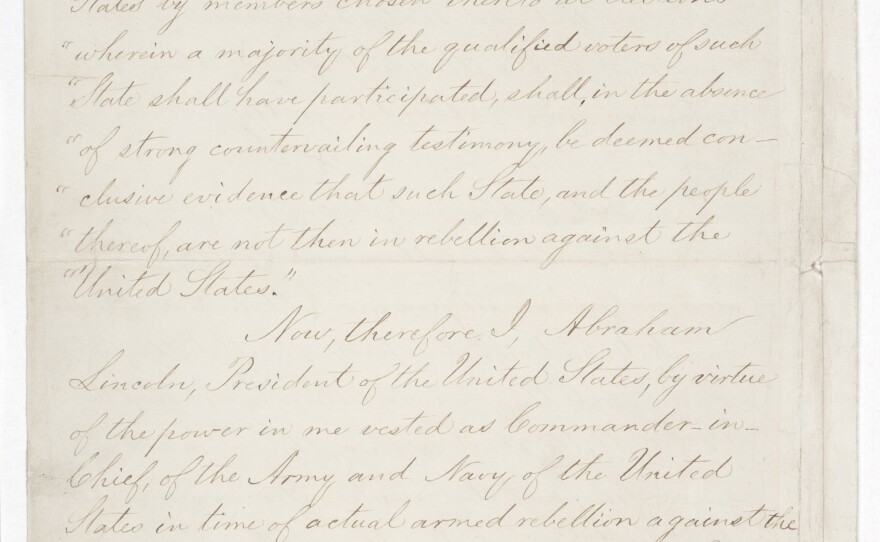 States by members chosen thereto at elections
"wherein a majority of the qualified voters of such
"State shall have participated, shall, in the absence
"of strong countervailing testimony, be deemed con-
"clusive evidence that such State, and the people
"thereof, are not then in rebellion against the
"United States."
Now, therefore I, Abraham
Lincoln, President of the United States, by virtue
of the power in me vested as Commander-in-
Chief, of the Army and Navy of the United
States in time of actual armed rebellion against the